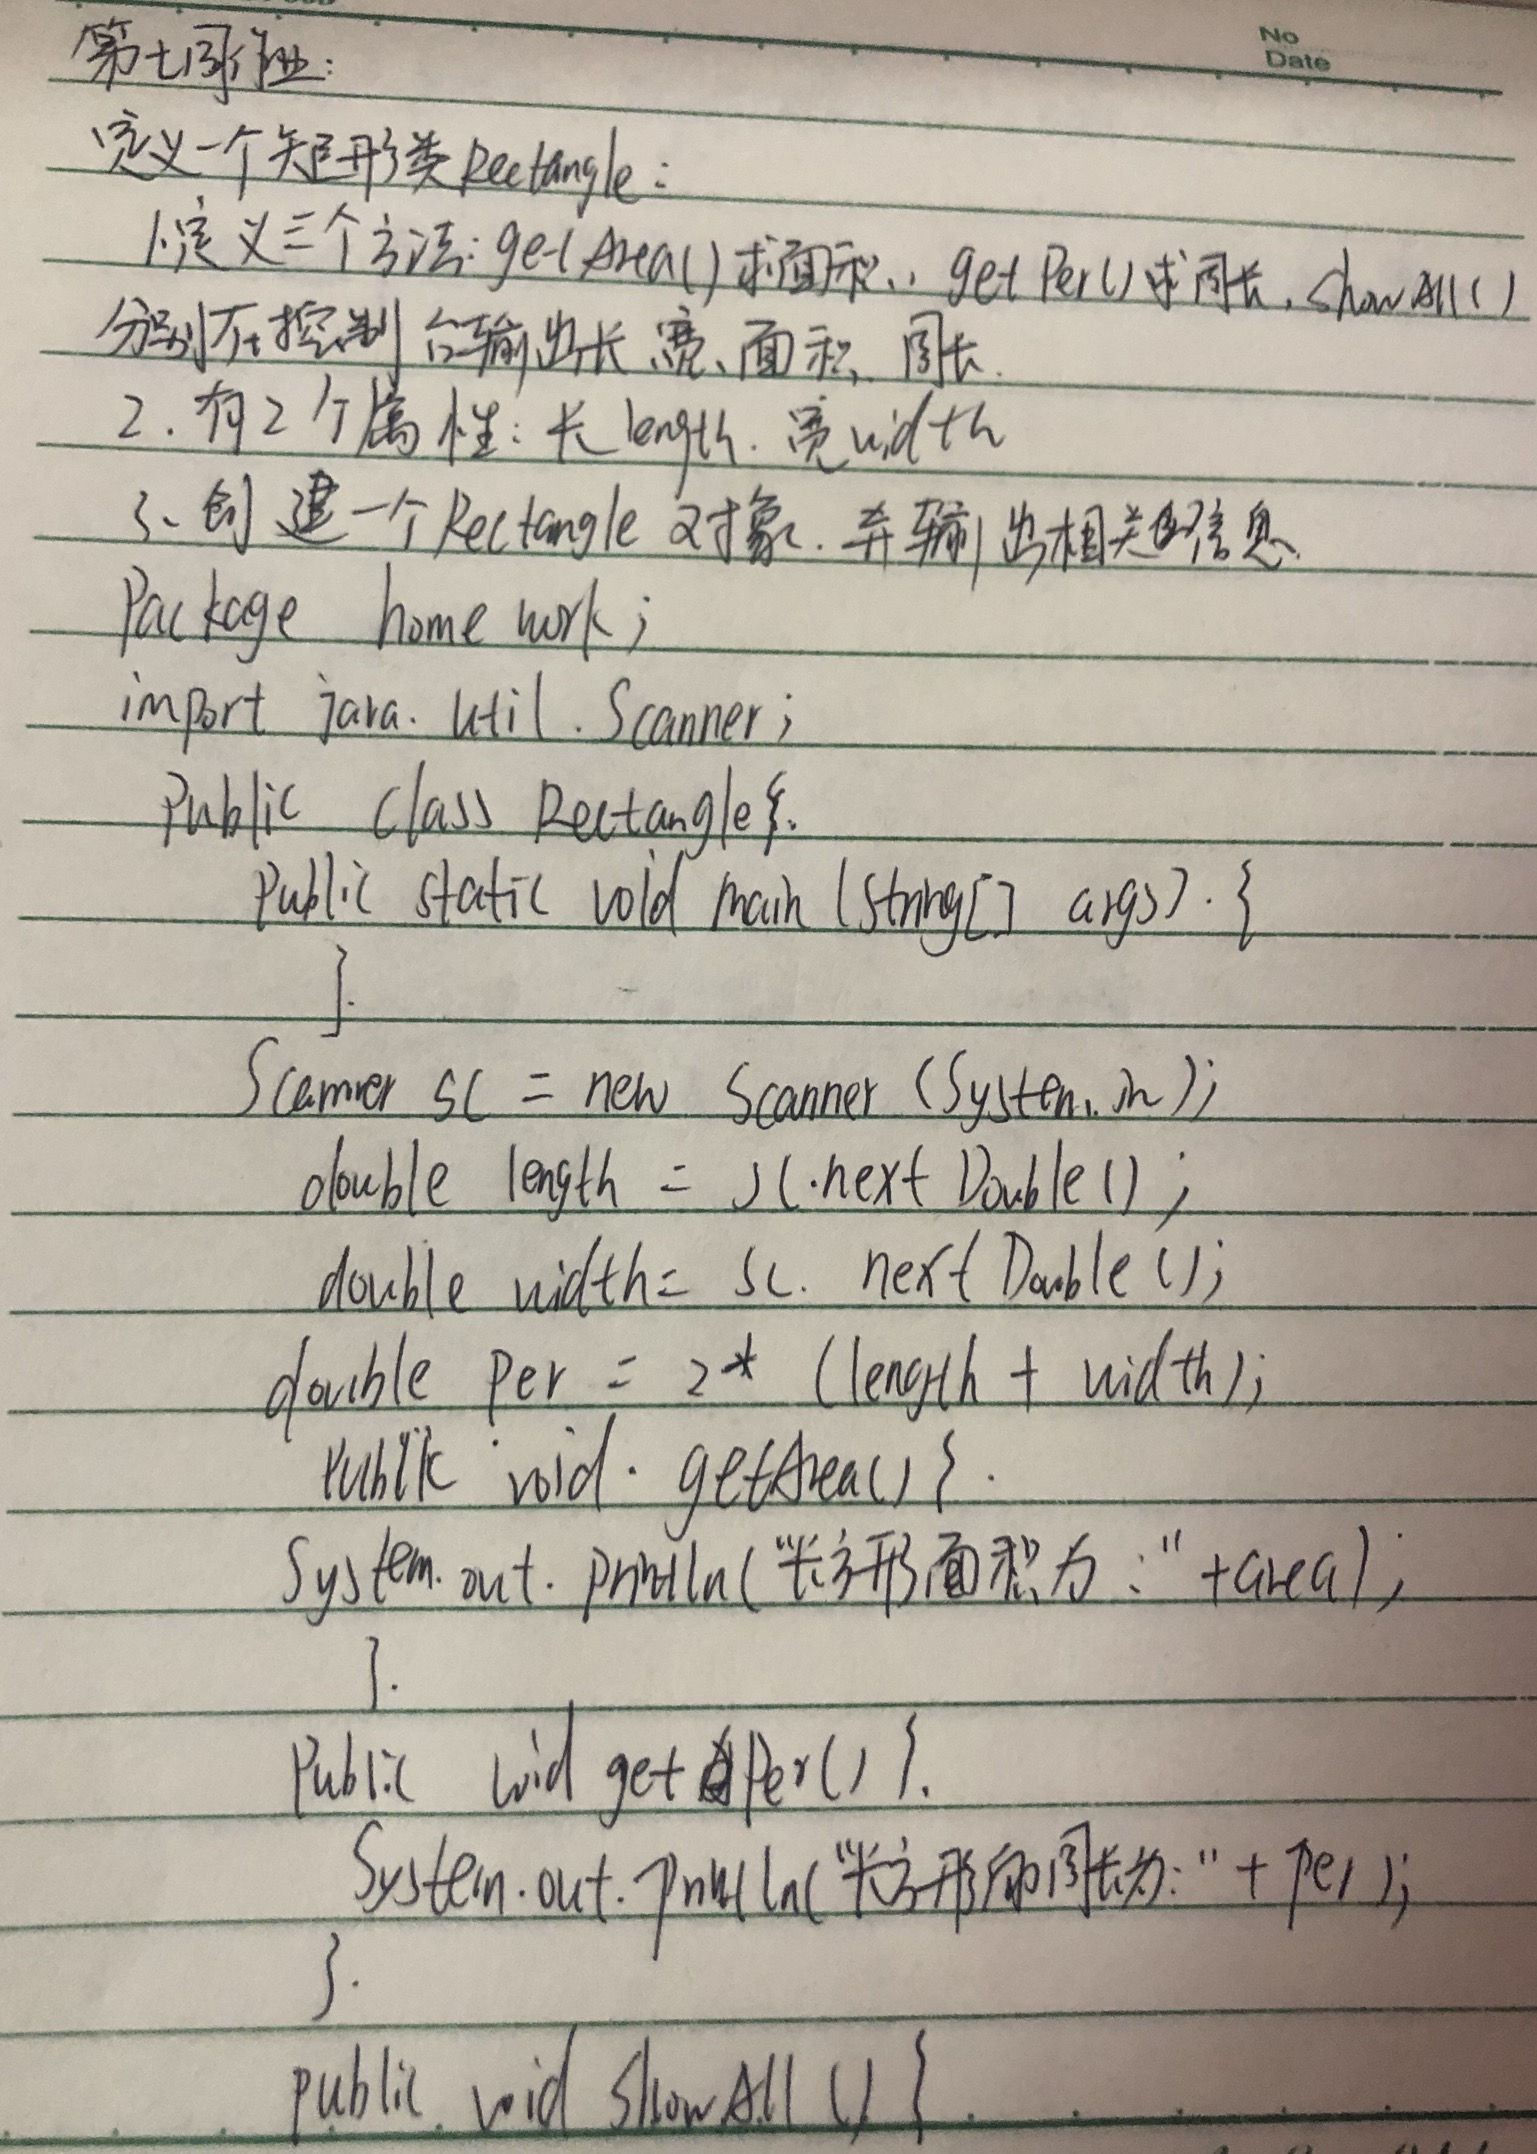 No
Date
第七周作业:
定义一个矩形类Rectangle:
1.定义三个方法:getArea()求面积、getPer()求周长、showAll()
分别在控制台输出长、宽、面积、周长.
2.有2个属性:长length.宽width
3、创建一个Rectangle对象.并输出相关的信息.
Package homework;
import java.util.Scanner;
Public class Rectangle{.
Public static void main (String[] args).{
}.
Scanner sc = new Scanner (System.in);
double length = sc.nextDouble();
double width= sc. nextDouble();
double per = 2* (length + width);
Public void. getArea(){.
System.out.println("长方形面积为:"+area);
}.
Public void getPer(){.
System.out.println("长方形的周长为:"+per);
}.
public void showAll(){